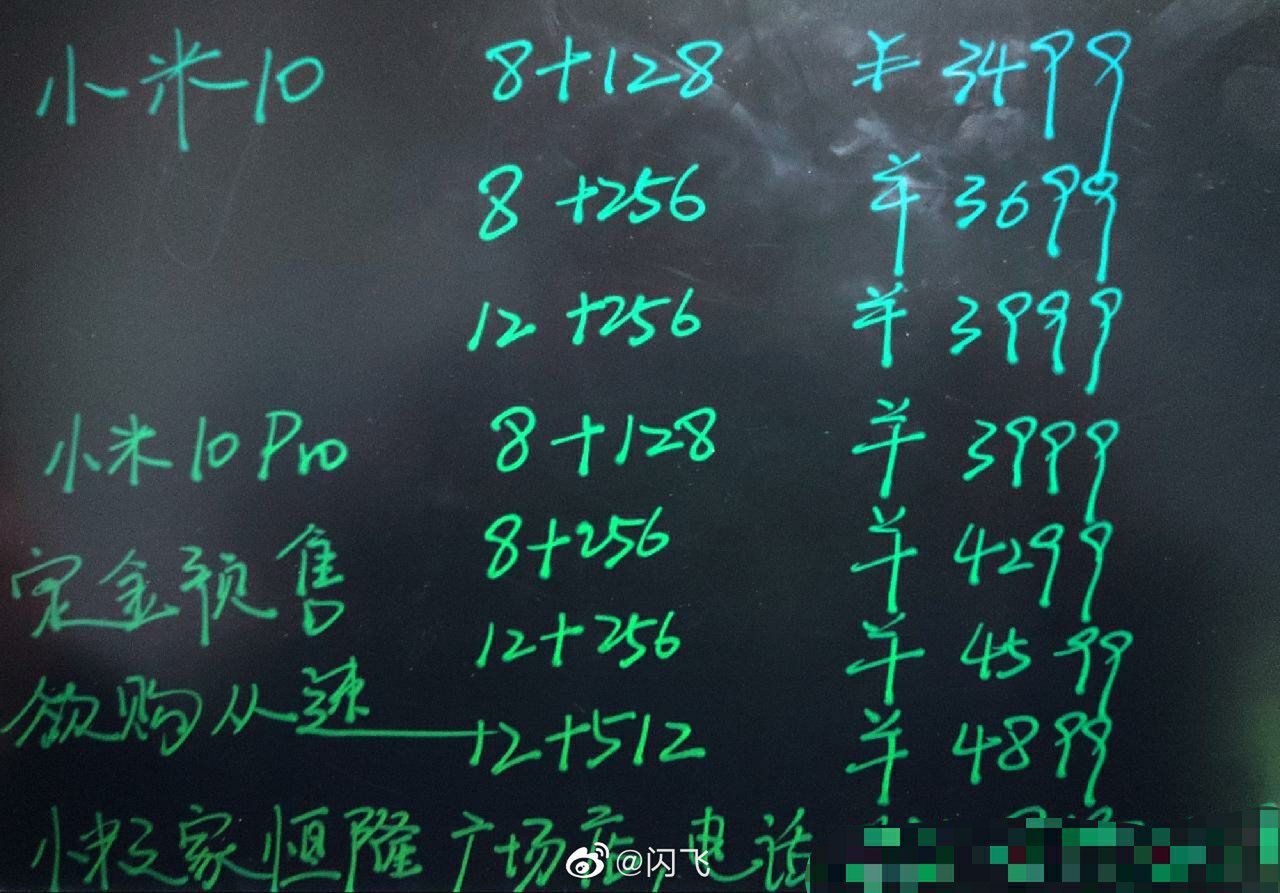 小米10 8+128 ¥3499
8+256 ¥3699
12+256 ¥3999
小米10Pro 8+128 ¥3999
8+256 ¥4299
定金预售
12+256 ¥4599
欲购从速 12+512 ¥4899
小米之家恒隆广场店,电话
@闪飞